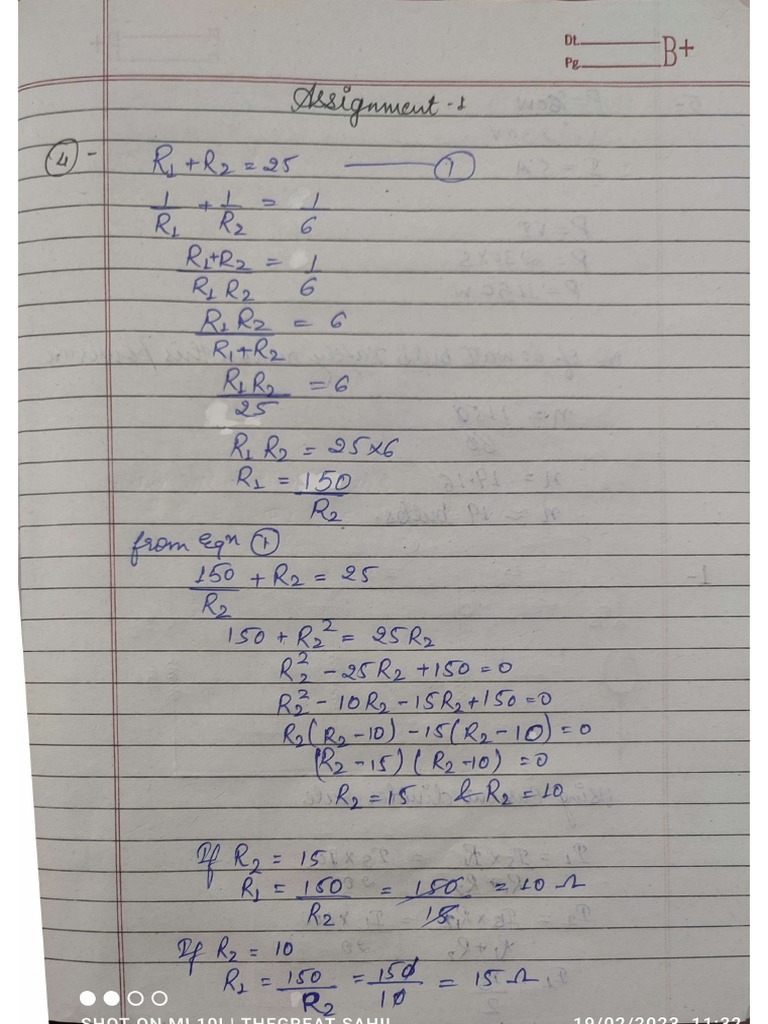 Dt.
Pg.
B+
Assignment-1
4 - R1 + R2 = 25 —— 1
1/R1 + 1/R2 = 1/6
R1+R2/R1 R2 = 1/6
R1 R2/R1+R2 = 6
R1 R2/25 = 6
R1 R2 = 25×6
R1 = 150/R2
from Eqn 1
150/R2 + R2 = 25
150 + R2² = 25R2
R2² - 25R2 + 150 = 0
R2² - 10R2 - 15R2 + 150 = 0
R2(R2-10) - 15(R2-10) = 0
(R2-15) (R2-10) = 0
R2 = 15 & R2 = 10
If R2 = 15
R1 = 150/R2 = 150/15 = 10 Ω
If R2 = 10
R1 = 150/R2 = 150/10 = 15 Ω
SHOT ON MI 10I | THEGREAT SAHIL
19/02/2023 11:22